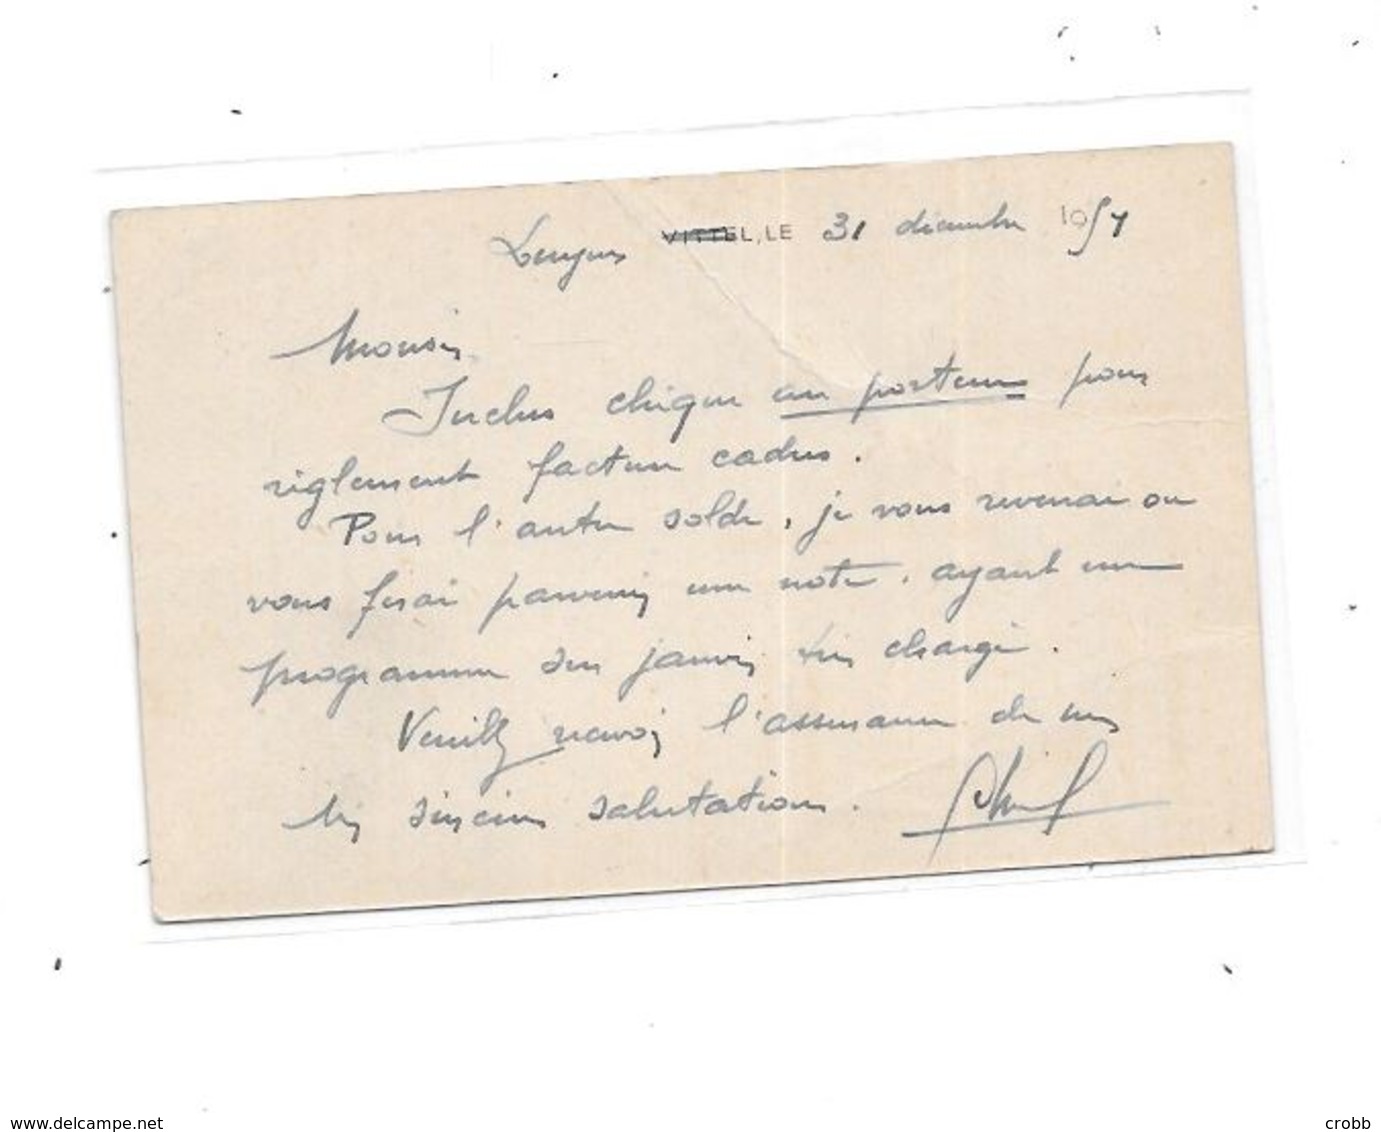 VITTEL, LE 31 décembre 1957
Monsieur
Inclus chèque au porteur pour
règlement facture cadres.
Pour l'autre solde, je vous reverrai ou
vous ferai parvenir une note, ayant un
programme sur janvier très chargé.
Veuillez recevoir l'assurance de mes
très sincères salutations.
www.delcampe.net
crobb